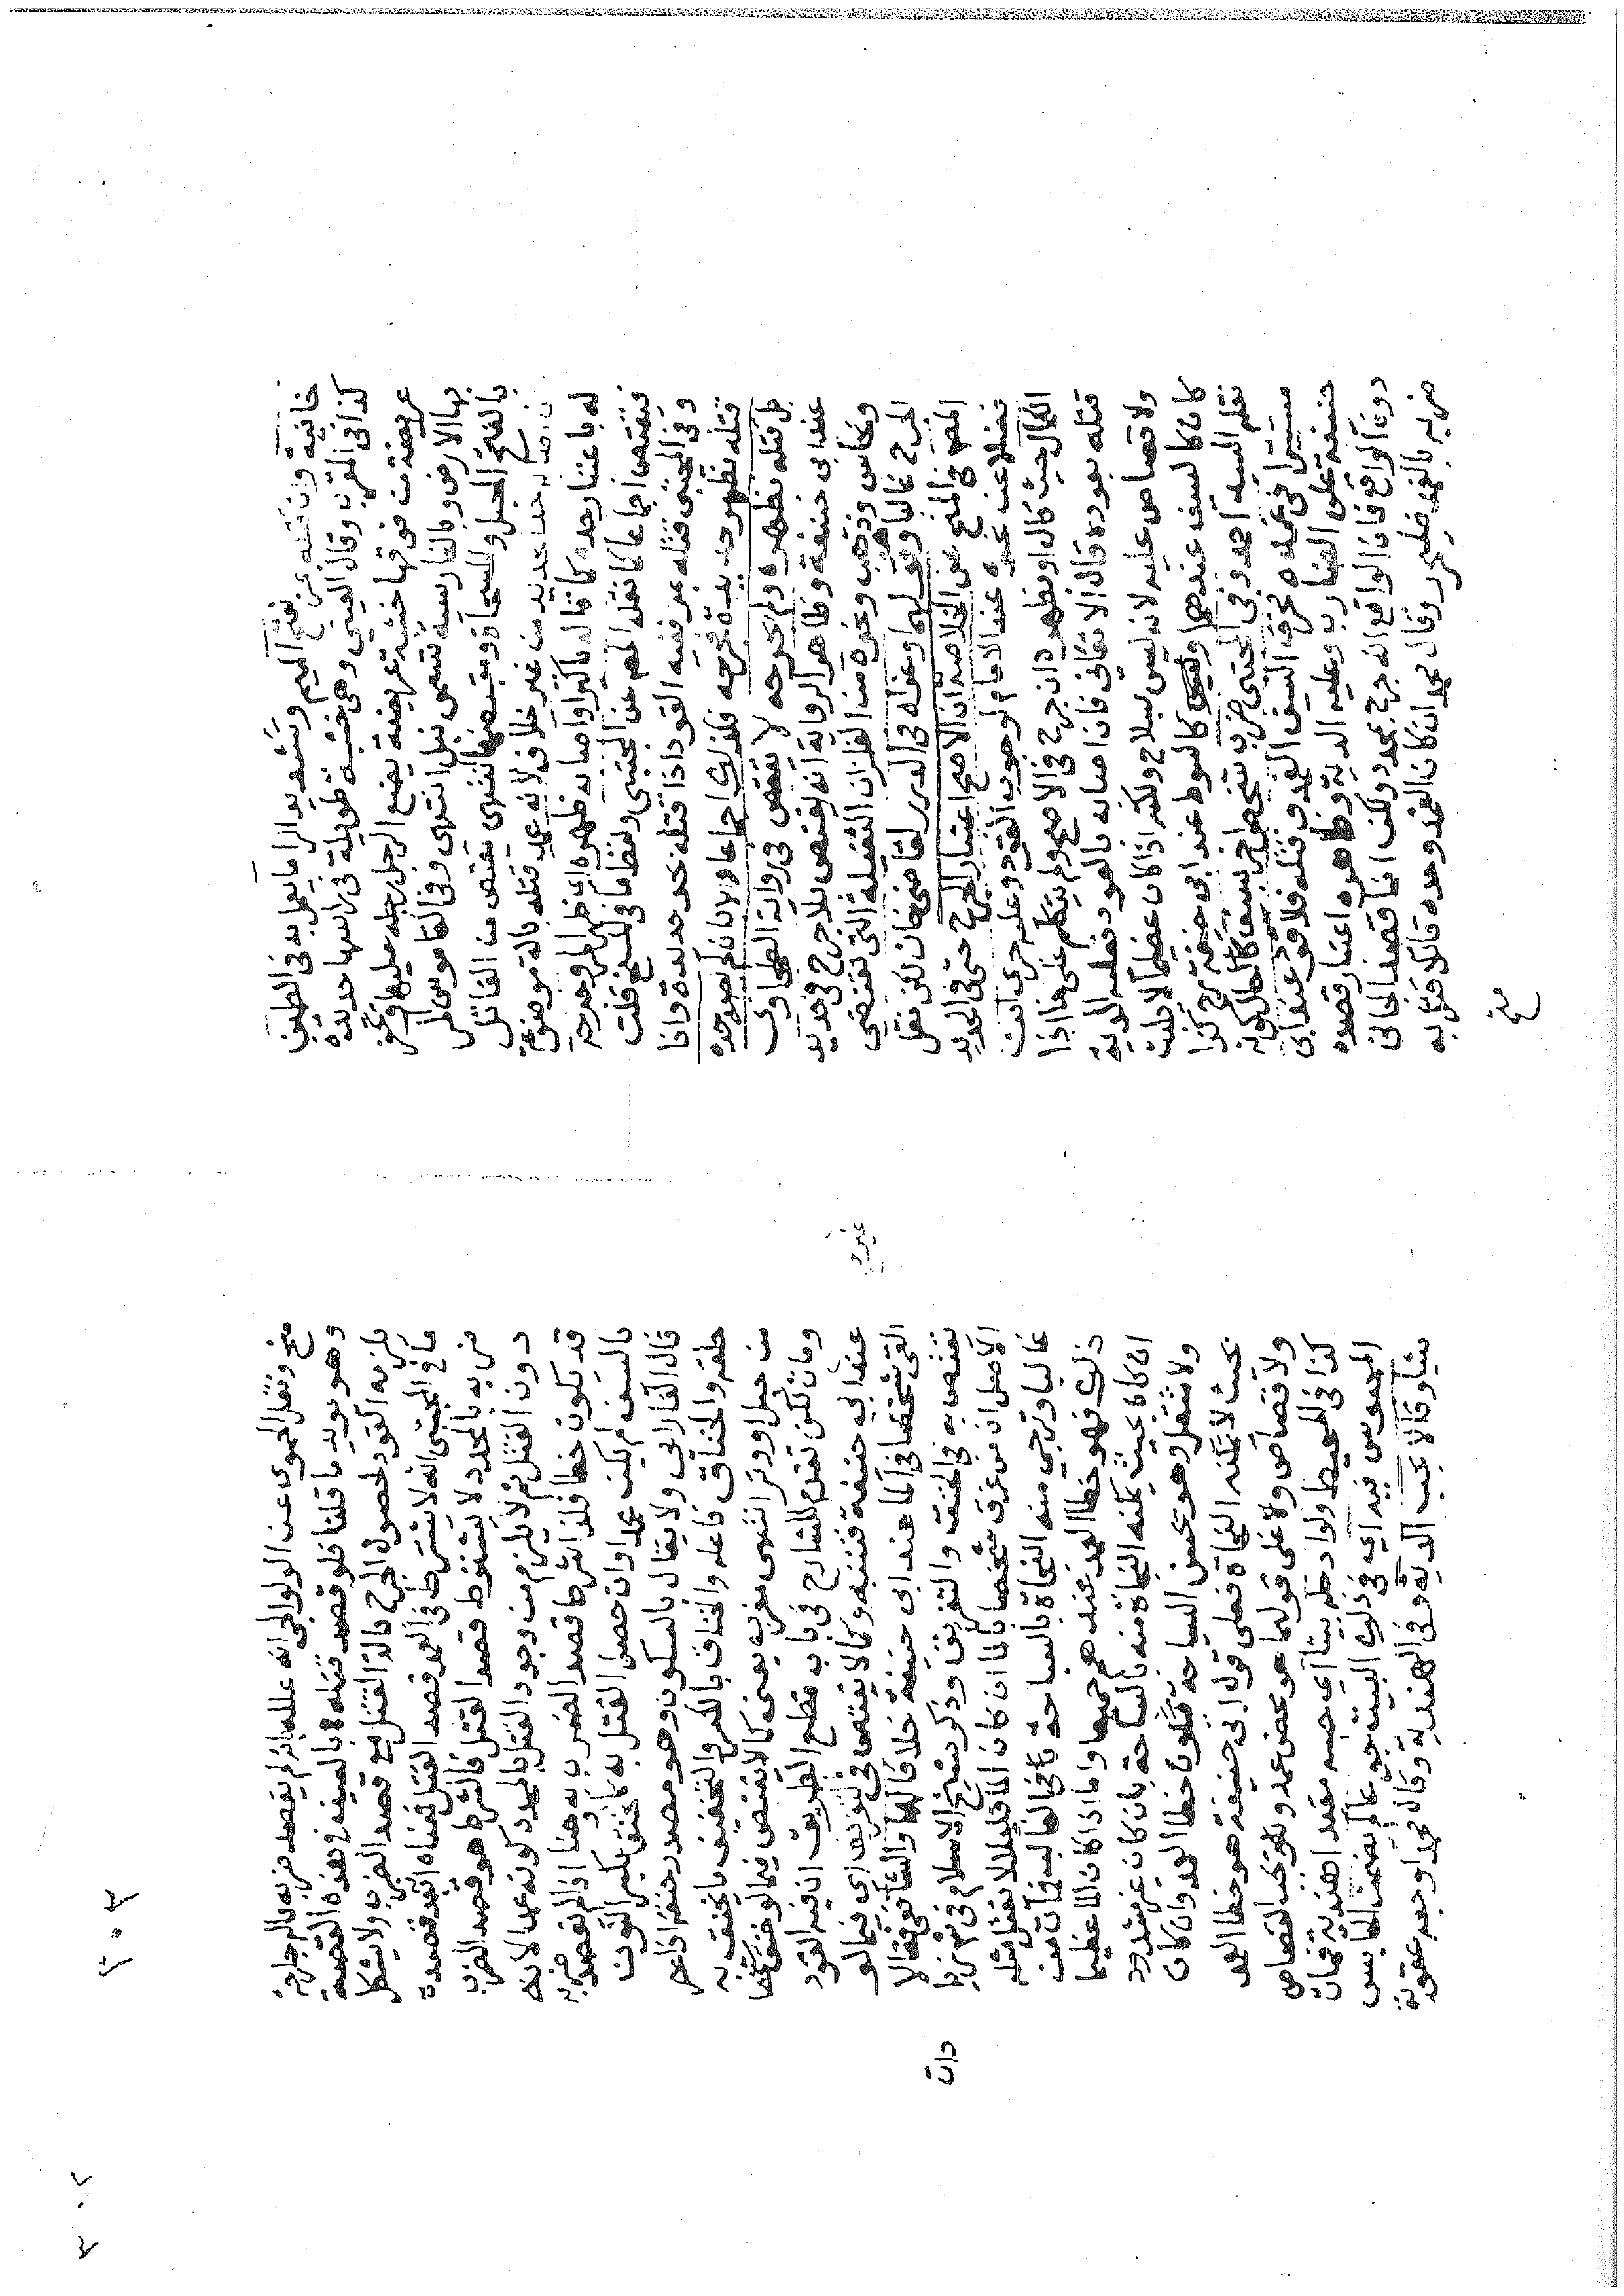 خانية وان قتله بمر بفتح الميم وتشديد الرا ما يعمل به في الطين
كذا في المغرب وقال العيني وهي خشبة طويلة في راسها حديدة
عريضة من فوقها خشبة عريضة يضع الرجل رجله عليها ويحفر
بها الارض وبالفارسية تسمى بيل انتهى وفي القاموس المر
بالفتح الحبل والمسحاة ومقبضها انتهى يقتص من القاتل
ان اصابه حد الحديد من غير خلاف لانه عمد قتله بالة موضوعة
له باعتبار حده كما قاله الاكثر او اصابه ظهره اي ظهر المر وجرحه
فيقتص اجماعا كما نقله المص عن المجتبى في المنح قلت
وفي المجتبى قتله بمر ففيه القود اذا قتله بحد حديدة واذا
قتله بظهر حديدة فجرحه فكذلك اجماعا والا بان لم يصبه حده
بل قتله بظهره ولم يجرحه لا يقتص في رواية الطحاوي
عن ابي حنيفة وظاهر الرواية انه يقتص بلا جرح في حديد
ونحاس وذهب ونحوه من الفلزات الثقيلة التي تقتضي
الجرح غالبا وهو قولهما وعزاه في الدرر لقاضي خان لكن نقل
المص في المنح عن الخلاصة ان الاصح اعتبار الجرح حتى في الحديد
فضلا عن غيره عند الامام لوجوب القود وعليه جرى ابن
الكمال حيث قال او بظهره ان جرح في الاصح ولم يتكلم على ما اذا
قتله بعوده قال الاتقاني فان اصابه بالعود فعليه الدية
ولا قصاص عليه لانه ليس بسلاح ولكنه اذا كان عظيما لا يلبث
كان كالسيف عندهما وليس كالسوط عند ابي حنيفة رح كذا
نقله السيد احمد وفي المجتبى ضرب شخص بسيف حال كونه
مستترا في غمده فخرق السيف الغمد وقتله فلا قود عند ابي
حنيفة على الضارب وعليه الدية وظاهره اعتبار قصده
دون الواقع فان الواقع انه جرح بمحدد ولكن انما قصد الجاني
ضربه بالغمد فليحرر وقال محمد ان كان الغمد وحده قاتلا قتل به
منح
٣٠٣
منح ونقل الحموي عن الولوالجي انه علله بانه لم يقصد ضربه بالة جارحة
وهو يويد ما قلنا فلو قصد قتله بالسيف في هذه القصة
يلزمه القود لحصول الجرح بالة القتل مع قصد الضرب ولا يشكل
ما في المجتبى انه لا يشترط في العمد قصد القتل لمعناه انه بعد قصده
ضربه بالمحدد لا يشترط قصد القتل فالشرط هو قصد الضرب
دون القتل ثم لا يلزم من وجود القتل بالمحدد كونه عمدا لانه
قد يكون خطا فلذا شرطا قصد الضرب به وهنا اذ لم يقصد ضربه
بالسيف لم يكن عمدا وان حصل القتل به كالخنق بكسر النون
قال الفارابي ولا يقال بالسكون وهو مصدر خنقه اذا عصر
حلقه والخناق فاعله والخناق بالكسر والتخفيف ما يخنق به
من حبل او وتر انتهى مغرب يعني كما لا يقتص فيما لو خنق شخصا
ومات لكن تقدم للشارح في باب قطع الطريق ان فيه القود
عند ابي حنيفة فتنبه وكما لا يقتص في تغريق اي فيما لو
القى شخصا في الما عند ابي حنيفة خلافا لهما والشافعي فقالا
يقتص به في الخنق والتغريق وذكر شيخ الاسلام في شرح
الاصل ان من غرق شخصا بالما ان كان الما قليلا لا يقتل مثله
غالبا وترجى منه النجاة بالسباحة في الغالب فمات من
ذلك فهو خطا العمد عندهم جميعا واما اذا كان الما عظيما
ان كان بحيث يمكنه النجاة منه بالسباحة بان كان غير مشدود
ولا مثقل وهو يحسن السباحة فيكون خطا العمد وان كان
بحيث لا يمكنه النجاة فعلى قول ابي حنيفة هو خطا العمد
ولا قصاص ولا على قولهما هو محض عمد ويجب القصاص
كذا في المحيط ولو ادخله بيتا اي حبسه مقيدا هندية فمات
المحبوس فيه اي في ذلك البيت جوعا لم يضمن الحابس
شيا وقالا تجب الدية وفي الهندية وقال محمد اوجعه عقوبة